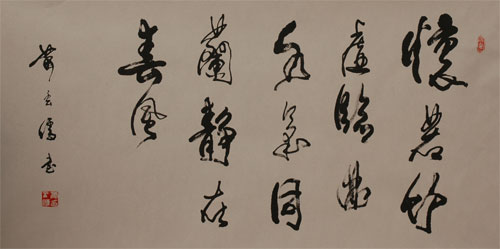 懷若竹
虛臨曲
水氣同
蘭靜在
春風
書